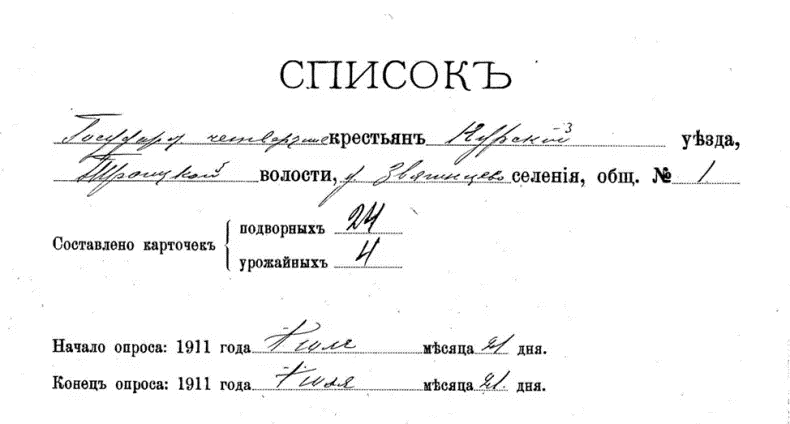 СПИСОКЪ
Государ четверт крестьянъ Курской уѣзда,
Троицкой волости, у Звягинцево селенія, общ. № 1
Составлено карточекъ { подворныхъ 24
урожайныхъ 4
Начало опроса: 1911 года Іюля мѣсяца 21 дня.
Конецъ опроса: 1911 года Іюля мѣсяца 21. дня.